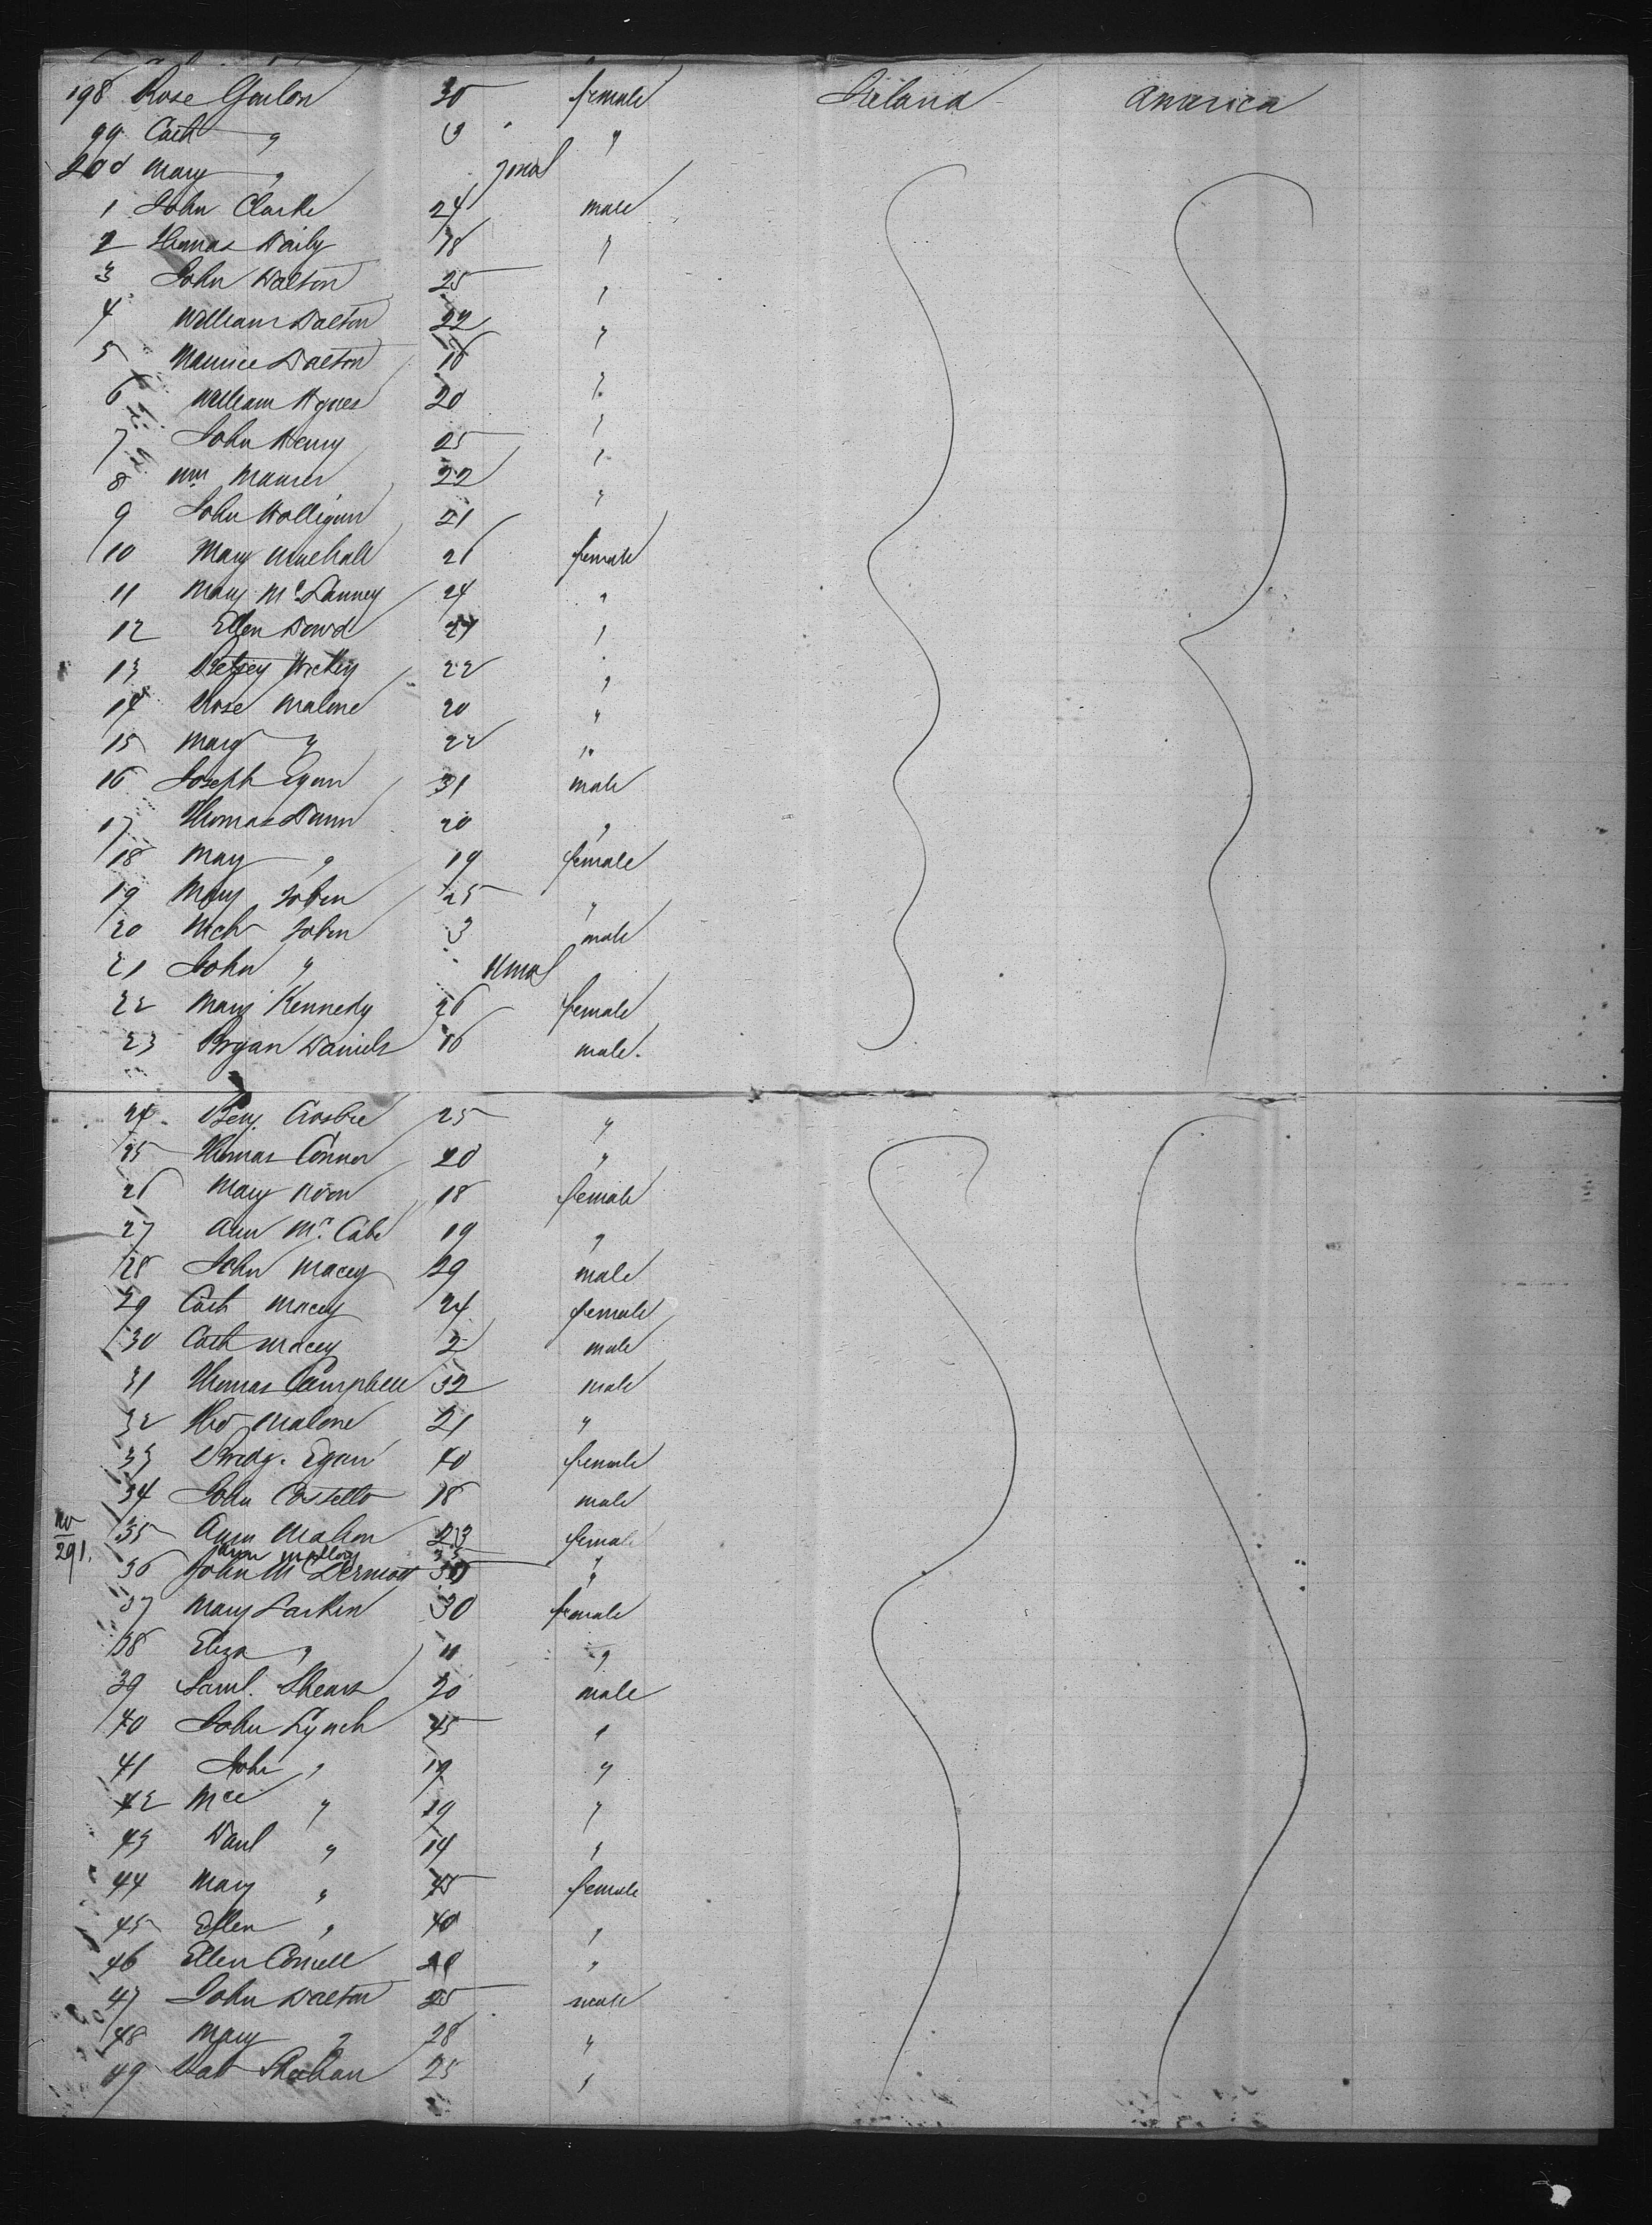 198 Rose 30 female Ireland America
99 Cath " "
200 Mary " mos
1 John Clarke 24 male
2 Thomas Daily 18 "
3 John Dalton 25 "
4 William Dalton 22 "
5 Maurice Dalton "
6 William 20 "
7 John Henry 25 "
8 Wm 22 "
9 John 21 "
10 Mary 21 female
11 Mary 24 "
12 Ellen Dowd "
13 Betsey 22 "
14 Rose Malone 20 "
15 Mary " 22 "
16 Joseph Egan 31 male
17 Thomas Dunn 20 "
18 Mary " 19 female
19 Mary Tobin 25 "
20 Mich Tobin 3 male
21 John " mos
22 Mary Kennedy 26 female
23 Bryan Daniels male.
24 Benj. Crosbie 25 "
25 Thomas Connor 20 "
26 Mary 18 female
27 Ann Mc. Cabe 19 "
28 John Macey 29 male
29 Cath Macey 24 female
30 Cath Macey 2 male
31 Thomas Campbell 32 male
32 Malone 21 "
33 Bridg. Egan 40 female
34 John Costello 18 male
No 291. 35 Ann Mahon 23 female
Malloy "
36 John Mc Dermott "
37 Mary Larkin 30 female
38 Eliza " 11 "
39 Saml. 20 male
40 John Lynch 45 "
41 John " 19 "
42 " 19 "
43 Danl " 14 "
44 Mary " 45 female
45 Ellen " 40 "
46 Ellen "
47 John Dalton 25 male
48 Mary " 28 "
49 25 "